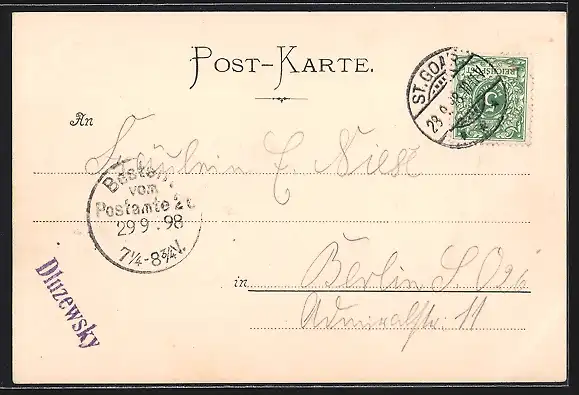 POST-KARTE.
ST. GOAR
28.9.98
REICHSPOST
5
An
Fräulein E. Niese
Bestellt
vom
Postamte
29.9.98
7¼-8¾V.
in Berlin S.O.
Admiralstr. 11
Dluzewsky